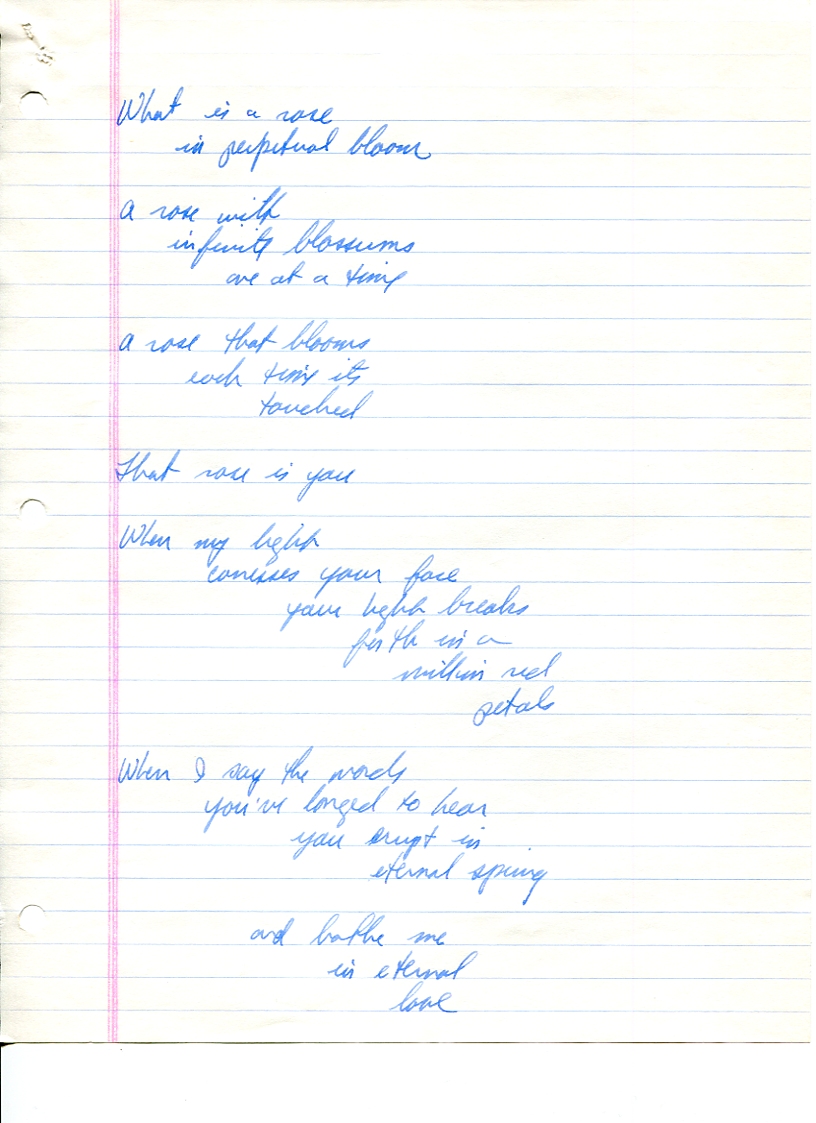 What is a rose
in perpetual bloom
A rose with
infinite blossums
one at a time
A rose that blooms
each time its
touched
That rose is you
When my light
caresses your face
your light breaks
forth in a
million red
petals
When I say the words
you've longed to hear
you erupt in
eternal spring
and bathe me
in eternal
love